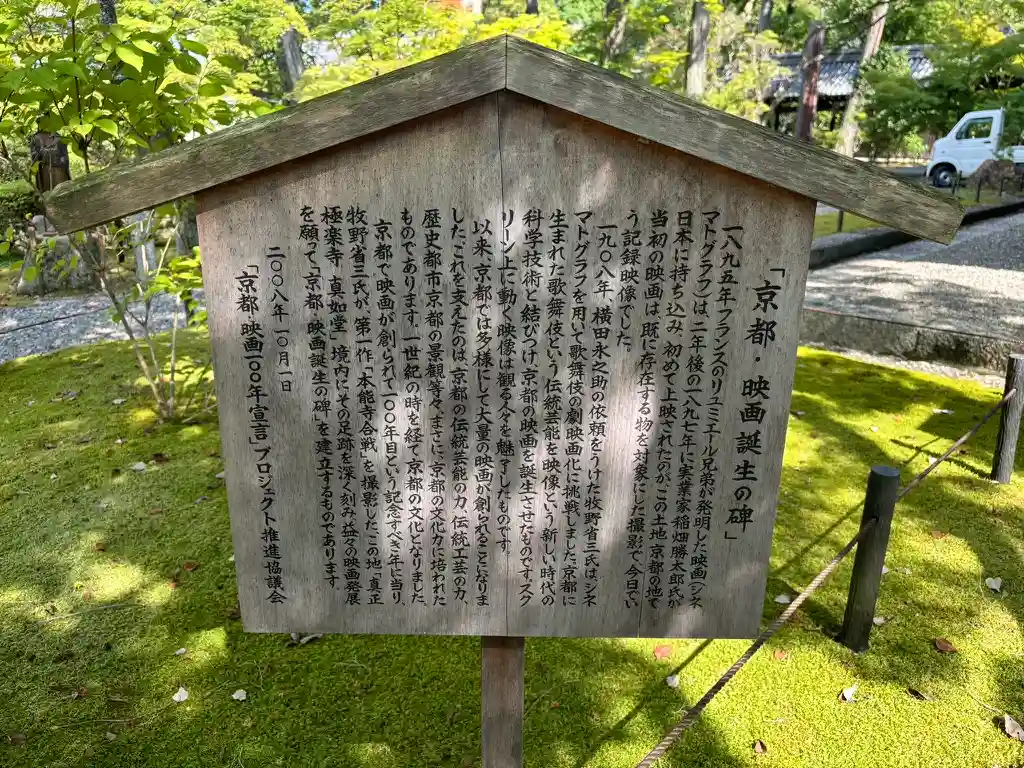 「京都・映画誕生の碑」
一八九五年フランスのリュミエール兄弟が発明した映画(シネ
マトグラフ)は、二年後の一八九七年に実業家稲畑勝太郎氏が
日本に持ち込み、初めて上映されたのが、この土地、京都の地で
当初の映画は、既に存在する物を対象にした撮影で、今日でい
う記録映像でした。
一九〇八年、横田永之助の依頼をうけた牧野省三氏は、シネ
マトグラフを用いて歌舞伎の劇映画化に挑戦しました。京都に
生まれた歌舞伎という伝統芸能を映像という新しい時代の
科学技術と結びつけ、京都の映画を誕生させたものです。スク
リーン上に動く映像は観る人々を魅了したものです。
以来、京都では多様にして大量の映画が創られることになりま
した。これを支えたのは、京都の伝統芸能の力、伝統工芸の力、
歴史都市京都の景観等々、まさに、京都の文化力に培われた
ものであります。一世紀の時を経て京都の文化となりました。
京都で映画が創られて一〇〇年目という記念すべき年に当り、
牧野省三氏が、第一作「本能寺合戦」を撮影した、この地「真正
極楽寺 真如堂」境内にその足跡を深く刻み、益々の映画発展
を願って、「京都・映画誕生の碑」を建立するものであります。
二〇〇八年 一〇月一日
「京都・映画一〇〇年宣言」プロジェクト推進協議会